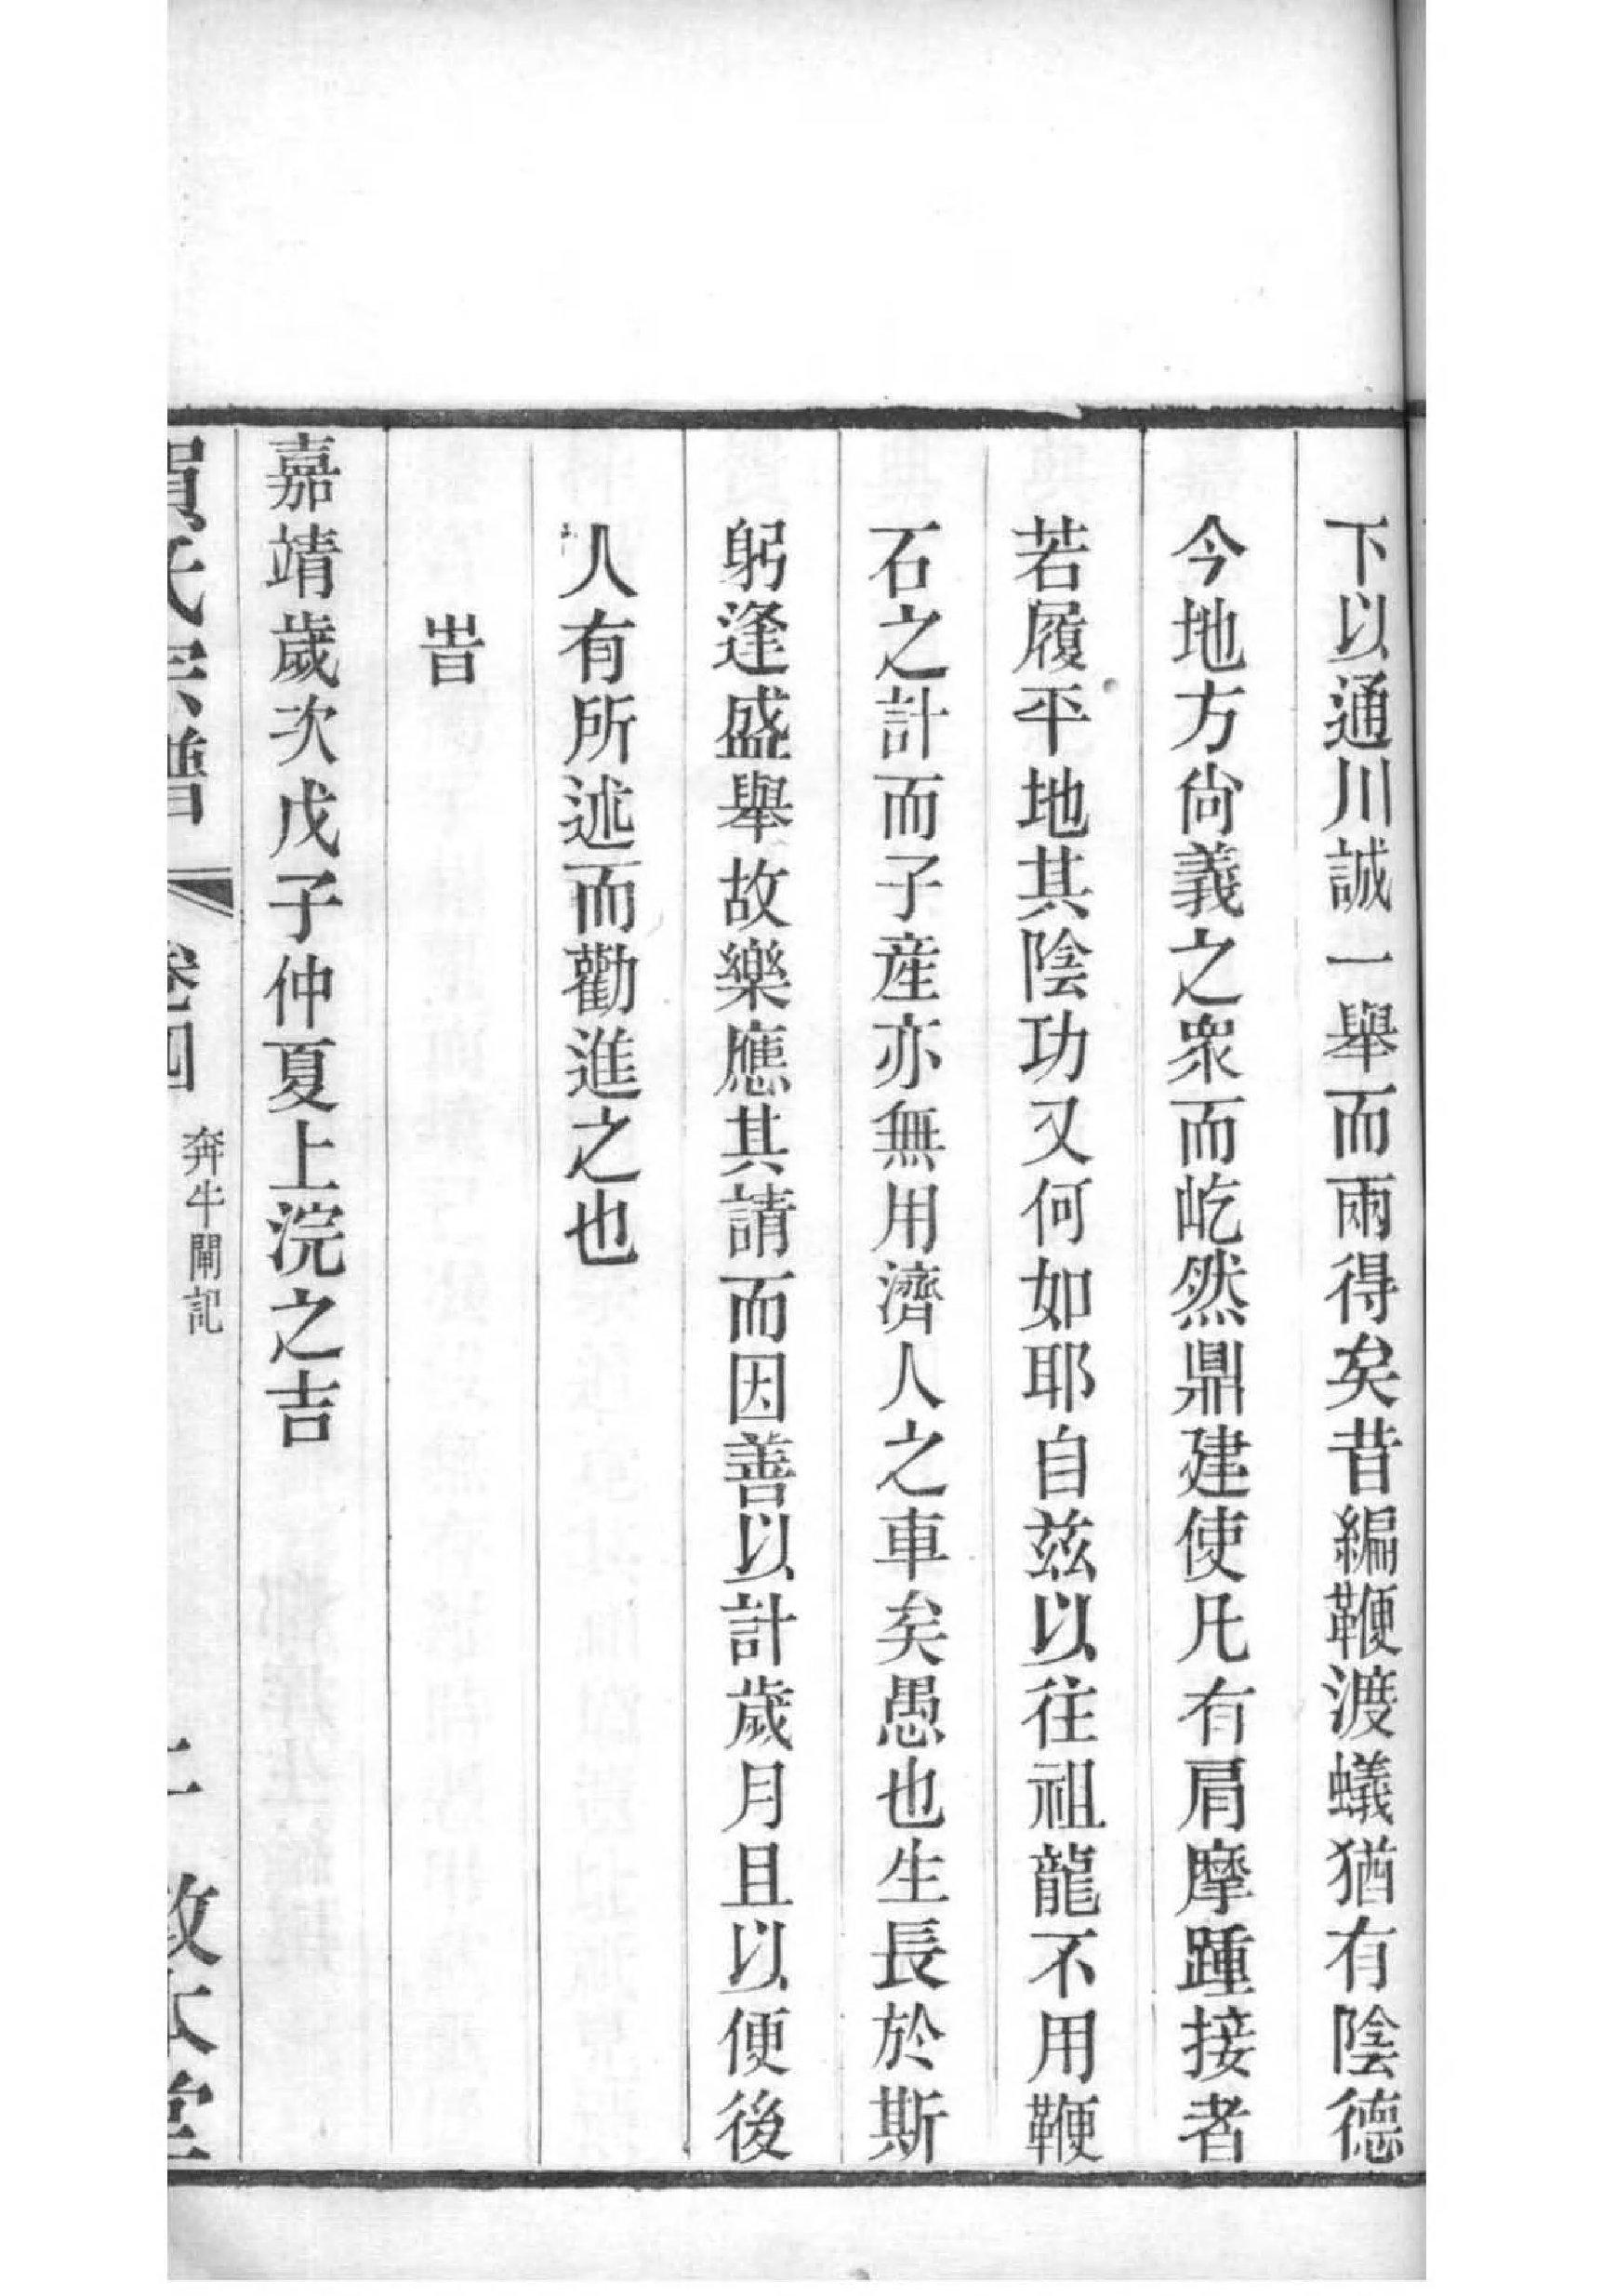 下以通川誠一舉而兩得矣昔編鞭渡蟻猶有陰德
今地方尙義之衆而屹然鼎建使凡有肩摩踵接者
若履平地其陰功又何如耶自兹以往祖龍不用鞭
石之計而子産亦無用濟人之車矣愚也生長於斯
躬逢盛舉故樂應其請而因善以計歲月且以便後
人有所述而勸進之也
旹
嘉靖歲次戊子仲夏上浣之吉
賀氏宗譜 卷四 奔牛閘記 敦本堂